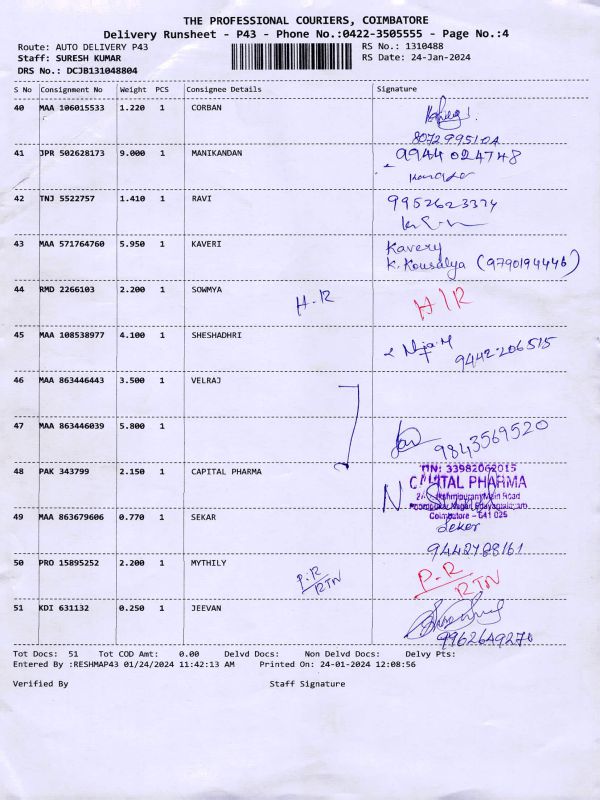 THE PROFESSIONAL COURIERS, COIMBATORE
Delivery Runsheet - P43 - Phone No.:0422-3505555 - Page No.:4
Route: AUTO DELIVERY P43 RS No.: 1310488
Staff: SURESH KUMAR RS Date: 24-Jan-2024
DRS No.: DCJB131048804
S No Consignment No Weight PCS Consignee Details Signature
40 MAA 106015533 1.220 1 CORBAN
41 JPR 502628173 9.000 1 MANIKANDAN 9944024748
42 TNJ 5522757 1.410 1 RAVI 9952623374
43 MAA 571764760 5.950 1 KAVERI Kavery
K. Kousalya (9790194446)
44 RMD 2266103 2.200 1 SOWMYA H.R H/R
45 MAA 108538977 4.100 1 SHESHADHRI
9442206515
46 MAA 863446443 3.500 1 VELRAJ
47 MAA 863446039 5.800 1 9843569520
48 PAK 343799 2.150 1 CAPITAL PHARMA TIN: 33982062015
CAPITAL PHARMA
Main Road
Coimbatore - 641 025
49 MAA 863679606 0.770 1 SEKAR Seker
9442788161
50 PRO 15895252 2.200 1 MYTHILY P.R RTN P.R RTN
51 KDI 631132 0.250 1 JEEVAN
9962649270
Tot Docs: 51 Tot COD Amt: 0.00 Delvd Docs: Non Delvd Docs: Delvy Pts:
Entered By :RESHMAP43 01/24/2024 11:42:13 AM Printed On: 24-01-2024 12:08:56
Verified By Staff Signature